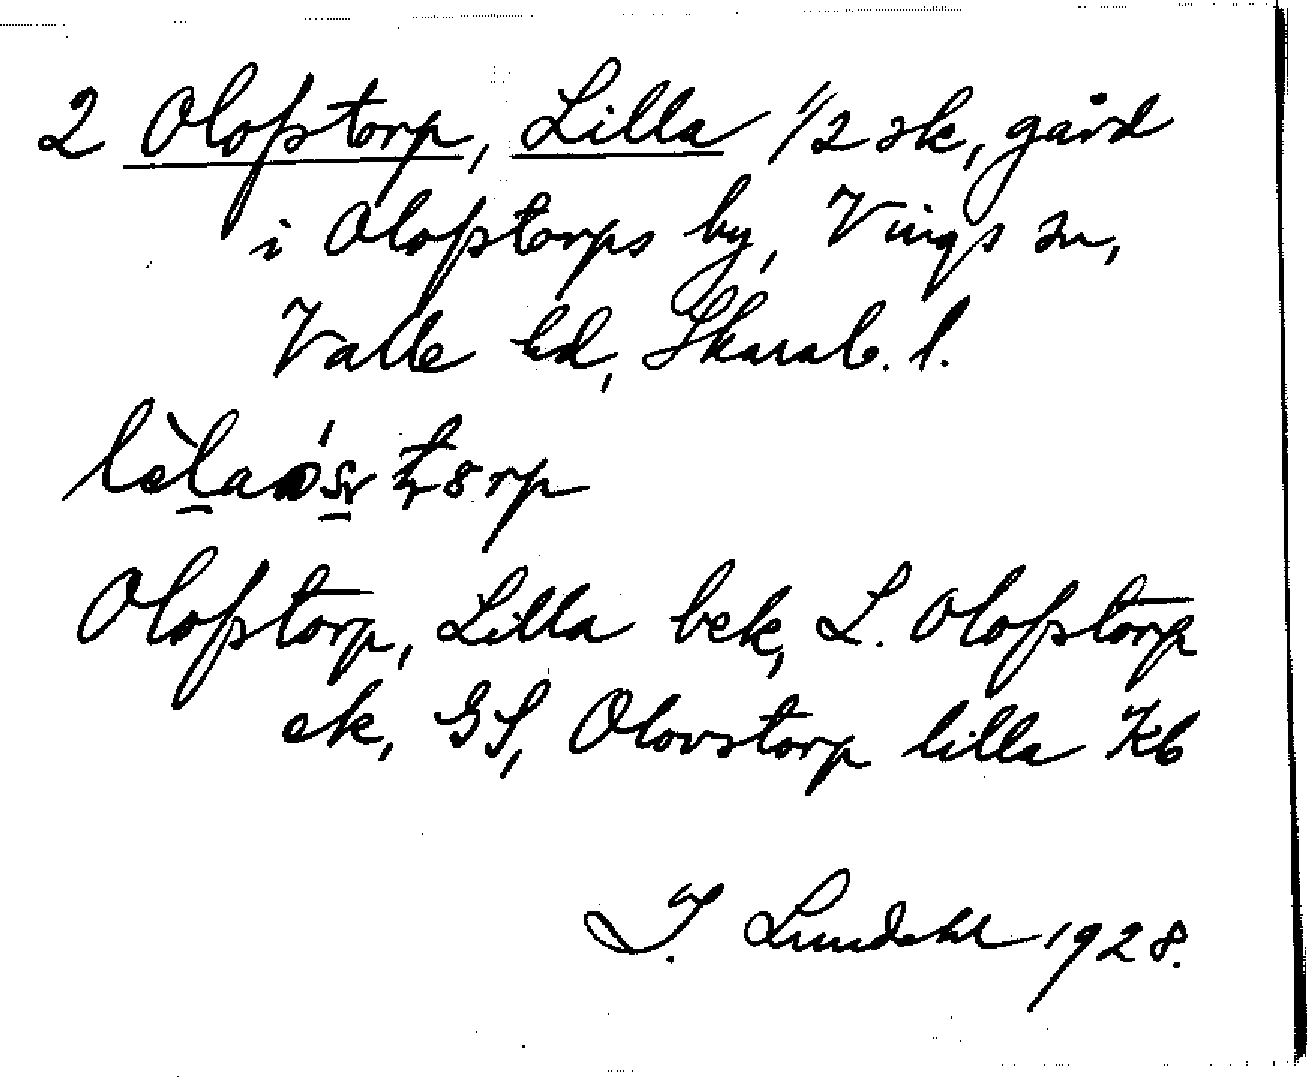 2 Olofstorp, Lilla 1/2 sk, gård
i Olofstorps by, Vings sn,
Valle hd, Skarab. l.
Olofstorp, Lilla bek, L. Olofstorp
ek, GS, Olovstorp lilla Kb
I. Lundahl 1928.